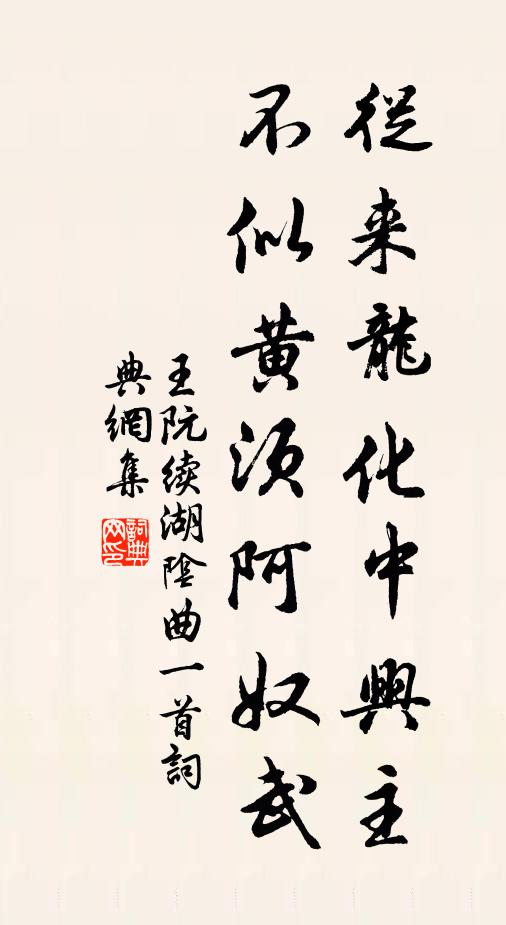 從来龍化中興主
不似黄須阿奴武
王阮续湖陰曲一首詞
典網集
詞典网印